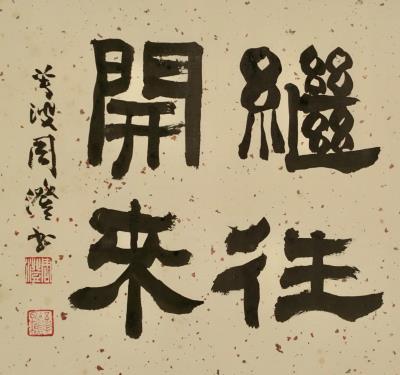 繼往
開來
芩波周澄書